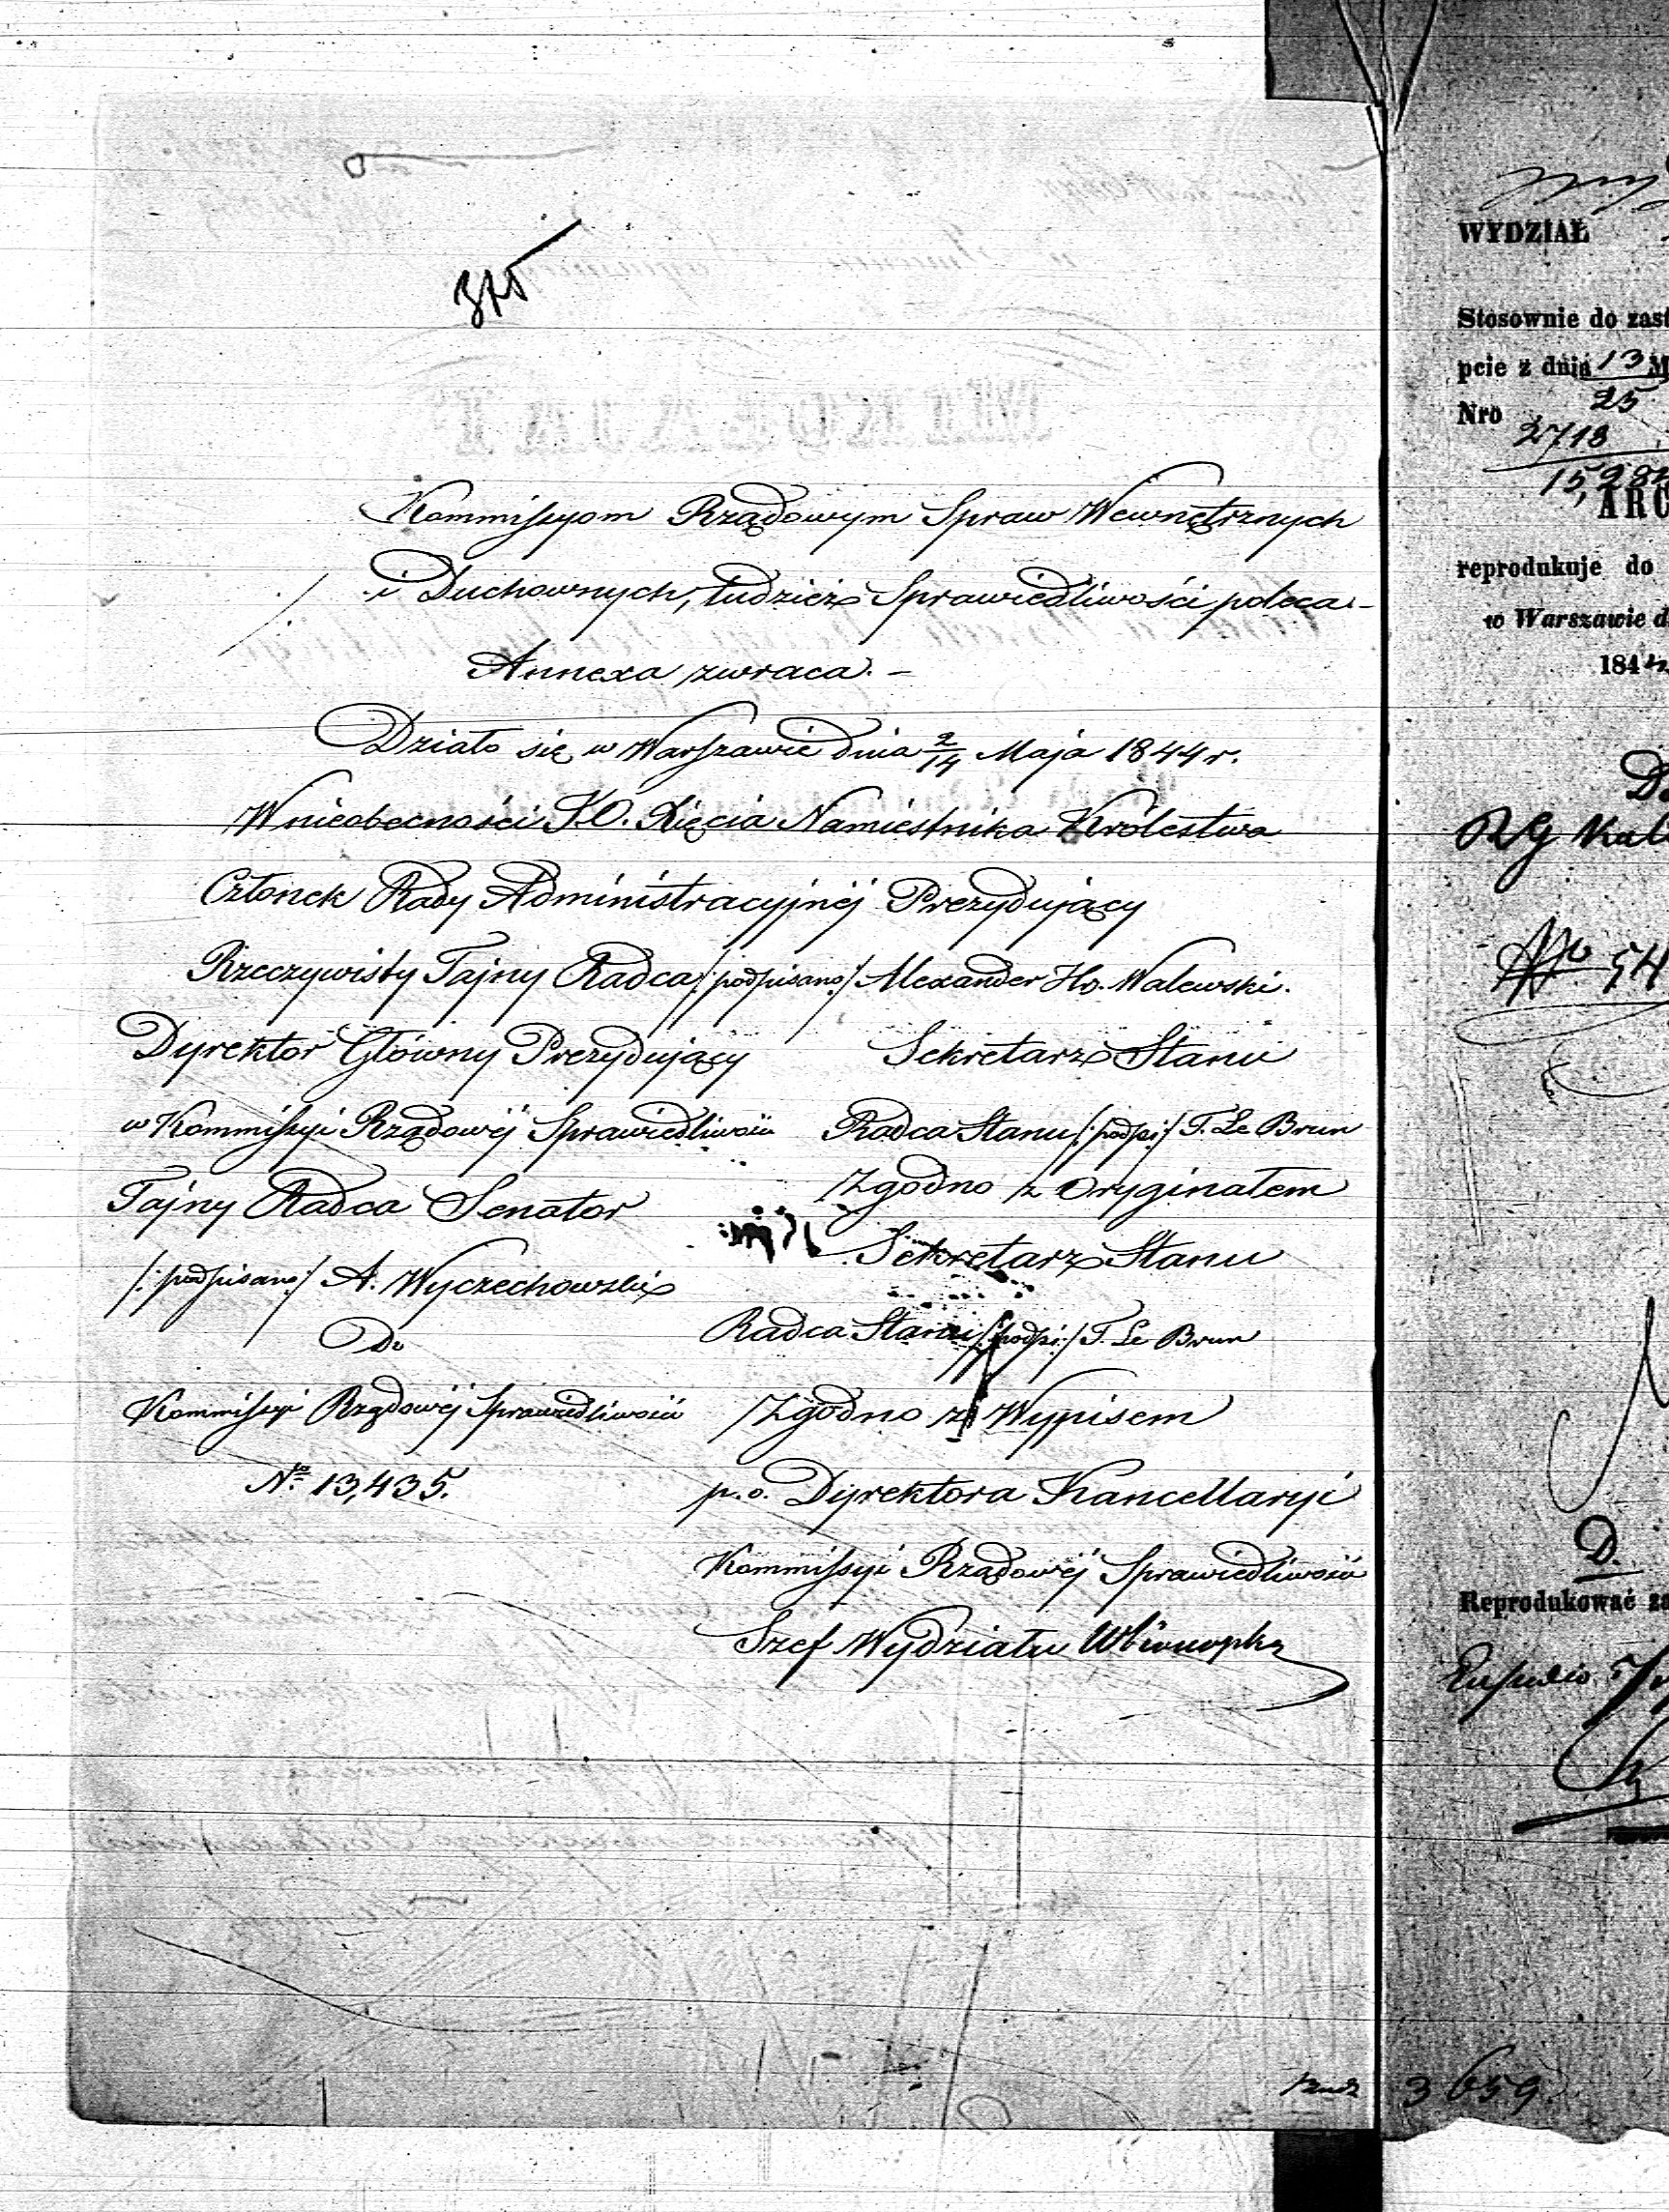 Kommissyom Rządowym Spraw Wewnętrznych
i Duchownych, tudzież Sprawiedliwości poleca. –
Annexa zwraca. –
Działo się w Warszawie dnia 2/14 Maja 1844 r.
W nieobecności J.O. Xięcia Namiestnika Królestwa
Członek Rady Administracyjnéj Prezydujący
Rzeczywisty Tajny Radca /:podpisano:/ Alexander Hr. Walewski.
Dyrektor Główny Prezydujący
w Kommissyi Rządowéj Sprawiedliwości
Tajny Radca Senator
/:podpisano:/ A. Wyczechowski
Do
Kommissyi Rządowéj Sprawiedliwości
No 13,435.
Sekretarz Stanu
Radca Stanu /:podpi:/ T. Le Brun
Zgodno z Oryginałem
Sekretarz Stanu
Radca Stanu /:podpi:/ T. Le Brun
Zgodno z Wypisem
p. o. Dyrektora Kancellaryi
Kommissyi Rządowéj Sprawiedliwości
Szef Wydziału
WYDZIAŁ
Stosownie do zast
pcie z dnia 13 M
25
Nro 2718
15,282
ARC
reprodukuje do
w Warszawie d
1844
RG Kal
No 54
D.
Reprodukować za
3659